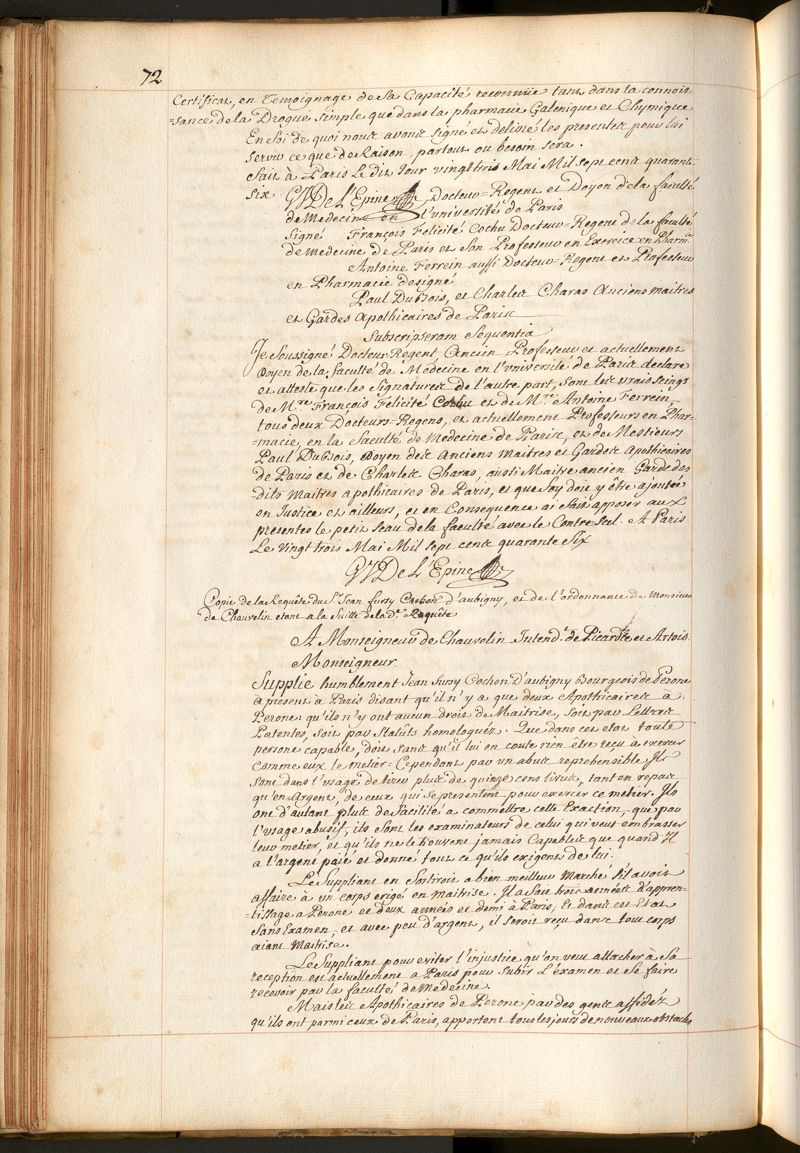 72
Certificat, en Temoignage de Sa Capacité reconnüe tant dans la connois
=sance de la Drogue Simple que dans la pharmacie Galenique et Chymique
En foi de quoi nous avons signé et delivré les presentes pour lui
servir ce que de Raison, partout ou besoin sera.
fait à Paris Le dit Jour vingt trois Mai Mil sept cens quarante
Six GJ De L'Epine Docteur=Regent et Doyen de la faculté
de Medecine en L'université de Paris
Signé François Felicité Cochu Docteur=Regent de la faculté
de medecine de Paris et son Professeur en Exercice en Pharm.ie
Antoine Ferrein aussi Docteur=Regent et Professeur
en Pharmacie designé
Paul DuBois, et Charles Charas Anciens maitres
et Gardes Apothicaires de Paris
Subscripseram Sequentia
Je Soussigné Docteur Regent, Ancien Professeur et actuellement
Doyen de la faculté de Medecine en l'université de Paris declare
et atteste que les Signatures de l'autre part, sont les vrais seings
de M.re François Felicité Cochu et de M.re Antoine Ferrein,
tous deux Docteurs=Regens, et actuellement Professeurs en Phar-
=macie, en la faculté de Medecine de Paris, et de Messieurs
Paul DuBois, Doyen des Anciens maitres et Gardes Apothicaires
de Paris et de Charles Charas, aussi Maitre ancien Garde des
dits maitres apothicaires de Paris, et que foy doit y être ajoutée
en Justice et ailleurs, et en Consequence ai fait apposer aux
presentes le petit Seau de la faculté avec le Contre-Scel. A Paris
Le Vingt trois Mai Mil sept cens quarante Six
GJ De L'Epine
Copie de la Requête du S.r Jean fursy Cochon d'aubigny, et de l'ordonnance de Monsieur
de Chauvelin etant a la Suitte de lad.e Requête
A Monseigneur de Chauvelin Intend.t de Picardie et Artois
Monseigneur
Supplie humblement Jean fursy Cochon D'aubigny Bourgeois de Perone
a present à Paris disant qu'il n'y a que deux Apothicaires à
Perone qu'ils n'y ont aucun droit de Maitrise, soit par Lettres
Patentes, soit par Statuts homologuez. Que dans cet etat toute
persone capable, doit sans qu'il lui en coute rien être reçu à exercer
comme eux le metier: Cependant par un abus reprehensible Ils
sont dans l'usage de tirer plus de quinze cens livres, tant en repas
qu'en Argent, de ceux qui se presentent pour exercer ce métier. Ils
ont d'autant plus de facilité a commettre cette Exaction, que par
l'usage abusif, ils sont les examinateurs de celui qui veut embrasser
leur metier, et qu'ils ne le trouvent jamais Capable que quand Il
a l'argent paié et donné tout ce qu'ils exigent de lui.
Le Suppliant en Sortirois a bien meilleur Marché S'il avoit
affaire à un corps erigé en maitrise. Il a fait trois années d'appren-
=tissage a Perone et deux années et demi à Paris, Et dans cet Etat
Sans Examen, et avec peu d'argent, il seroit reçu dans tout corps
aiant Maitrise.
Le Suppliant pour eviter l'injustice qu'on veut attacher à Sa
reception est actuellement a Paris pour Subir L'éxamen et Se faire
recevoir par la faculté de Medecine.
Mais les Apothicaires de Perone par des gens affidéz
qu'ils ont parmi ceux de Paris, apportent tous les jours de nouveaux obstacles